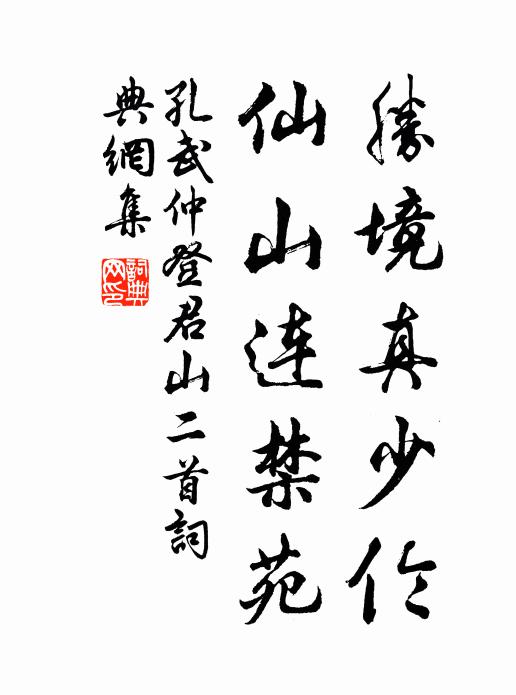 勝境真少倫
仙山連禁苑
孔武仲登君山二首詞
典網集
詞典
网印